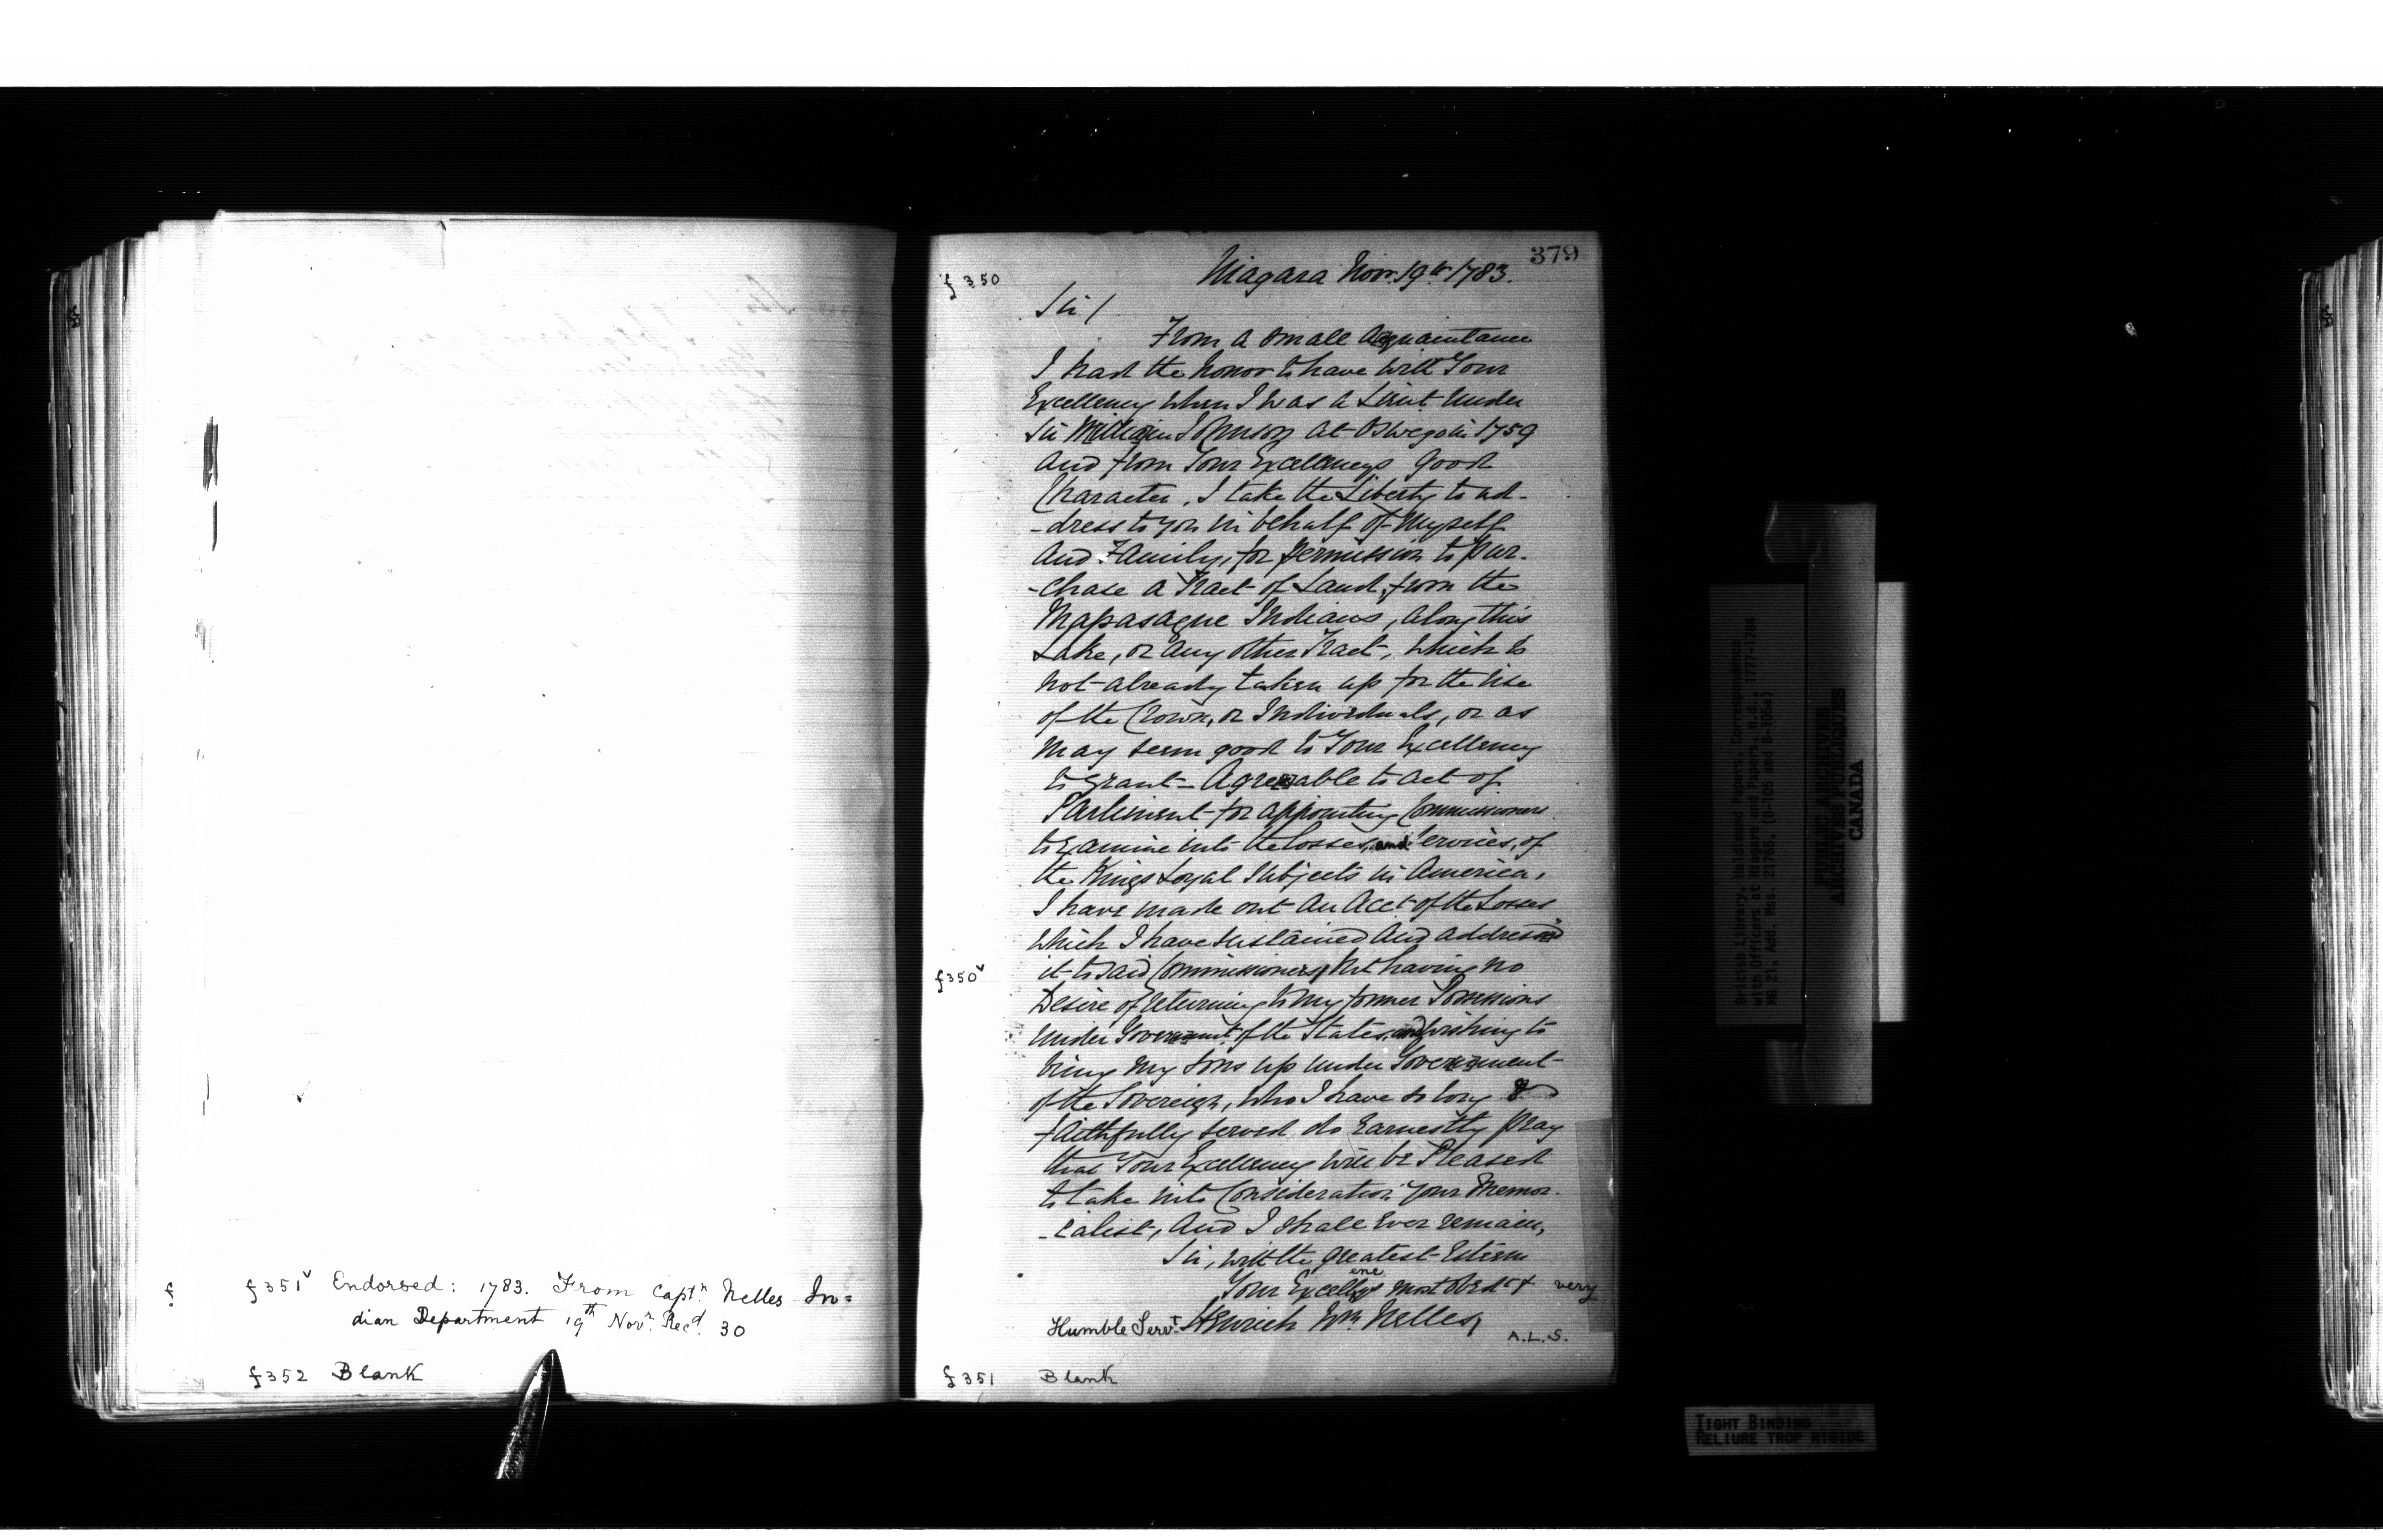 f 351v Endorsed: 1783. From Captn. Nelles In=
dian Department 19th Novr. Recd. 30
f 352 Blank
379
f 350
Niagara Novr. 19th 1783.
Sir/
From a small Acquaintance
I had the honor to have with Your
Excellency when I was a Lieut. under
Sir William Johnson at Oswego in 1759
And from Your Excellencys good
Character, I take the Liberty to ad-
-dress to you in behalf of Myself
And Family, for permission to pur-
-chase a Tract of Land, from the
Mapasague Indians, along this
Lake, or any other Tract, which is
not already taken up for the Use
of the Crown, or Individuals, or as
may seem good to Your Excellency
to grant- Agreeable to Act of
Parliment for appointing Commissioners
to Examine into the Losses, and Services, of
the Kings Loyal Subjects in America,
I have made out An Acct of the Losses,
which I have sustained And addressed
f350v
it to said Commissioners, but having no
Desire of returning to my former Possessions
under Government of the States, and wishing to
bring my sons up under Government
of the Sovereign, who I have so long &
faithfully served do Earnestly pray
that Your Excellency will be Pleased
to take into Consideration your Memor-
-ialist, And I shall Ever remain,
Sir, with the greatest Esteem
Your Excellencys most Obedt & very
Humble Servt. Henrich Wm. Nelles,
A.L.S.
f 351 Blank
British Library, Haldimand Papers, Correspondence
with Officers at Niagara and Papers, n.d., 1777-1784
MG 21, Add. Mss. 21765, (B-105 and B-105a)
PUBLIC ARCHIVES
ARCHIVES PUBLIQUES
CANADA
TIGHT BINDING
RELIURE TROP RIGIDE